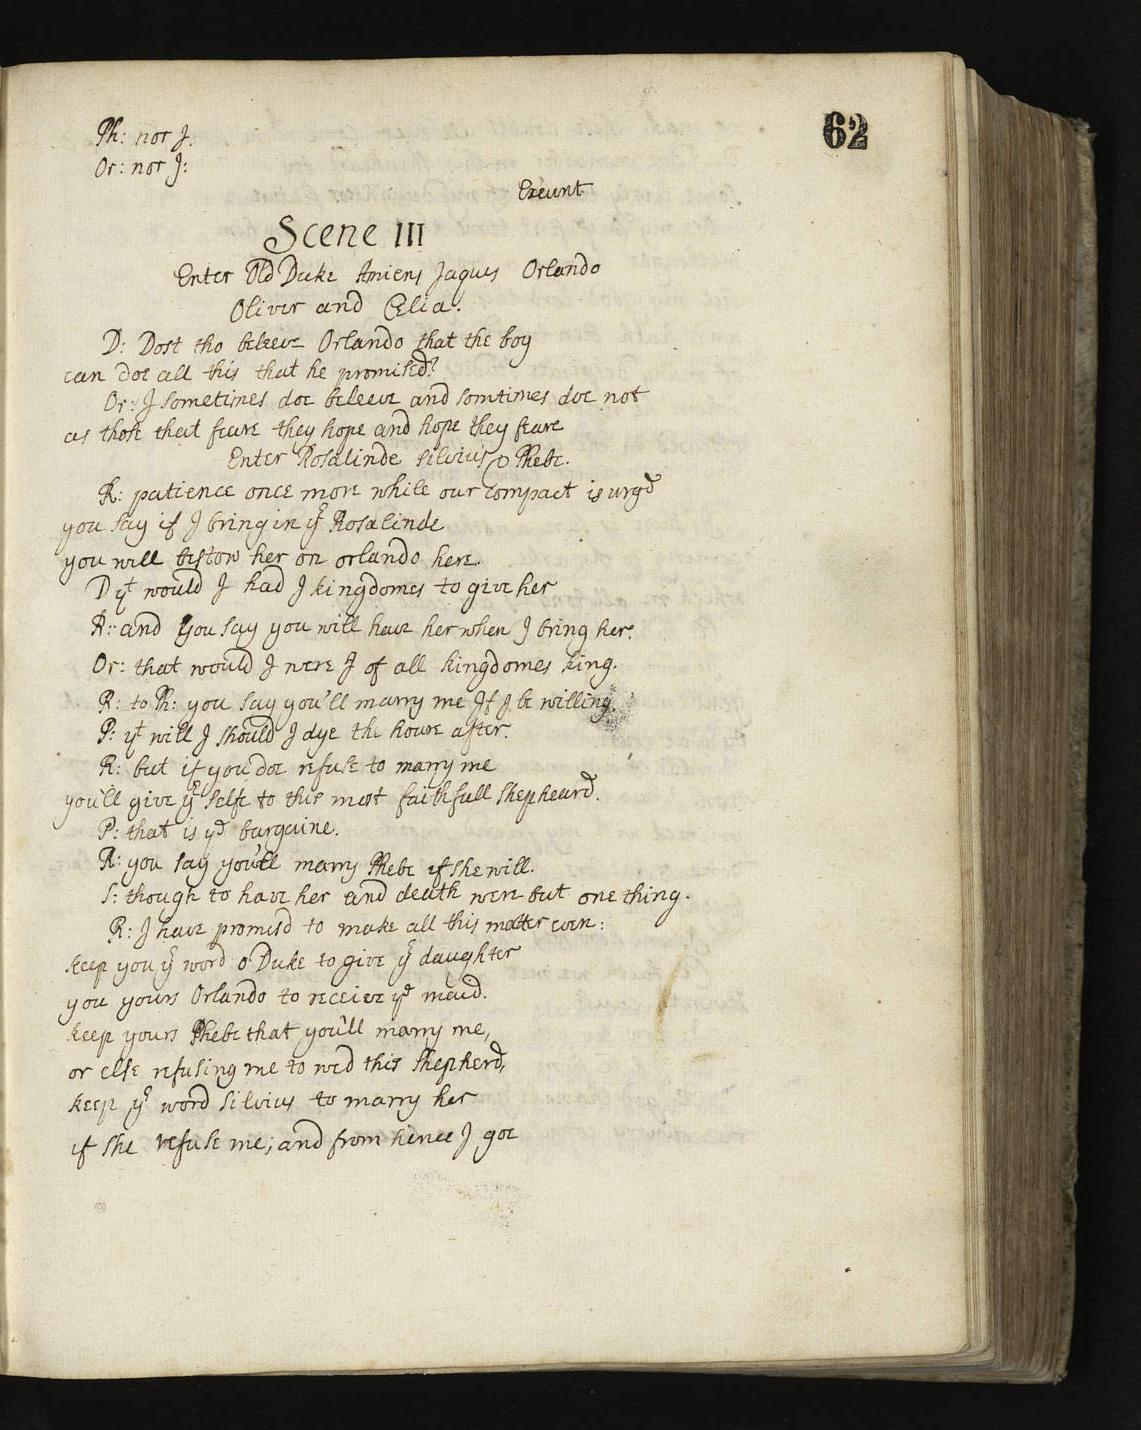 62
Ph: nor J.
Or: nor J:
Exeunt
Scene III
Enter Old Duke Amiens Jaques Orlando
Oliver and Celia.
D: Dost tho beleeve Orlando that the boy
can doe all this that he promised?
Or: J sometimes doe beleeve and somtimes doe not
as those that feare they hope and hope they feare
Enter Rosalinde Silvius & Phebe.
R: patience once more while our compact is urgd
you say if J bring in yr Rosalinde
you will bestow her on orlando here.
D yt would J had J kingdomes to give her
R: and you say you will have her when J bring her.
Or: that would J were J of all kingdomes king.
R: to Ph: you say you'll marry me If J be willing.
P: yt will J should J dye the houre after.
R: but if you doe refuse to marry me
you'll give yr selfe to this most faithfull shepheard.
P: that is ye bargaine.
R: you say you'll marry Phebe if she will.
S: though to have her and death were but one thing.
R: J have promisd to make all this matter even:
keep you yr word o Duke to give yr daughter
you yours Orlando to receive ye maid.
keep yours Phebe that you'll marry me,
or else refusing me to wed this shepherd,
keep yr word Silvius to marry her
if she refuse me; and from hence J goe